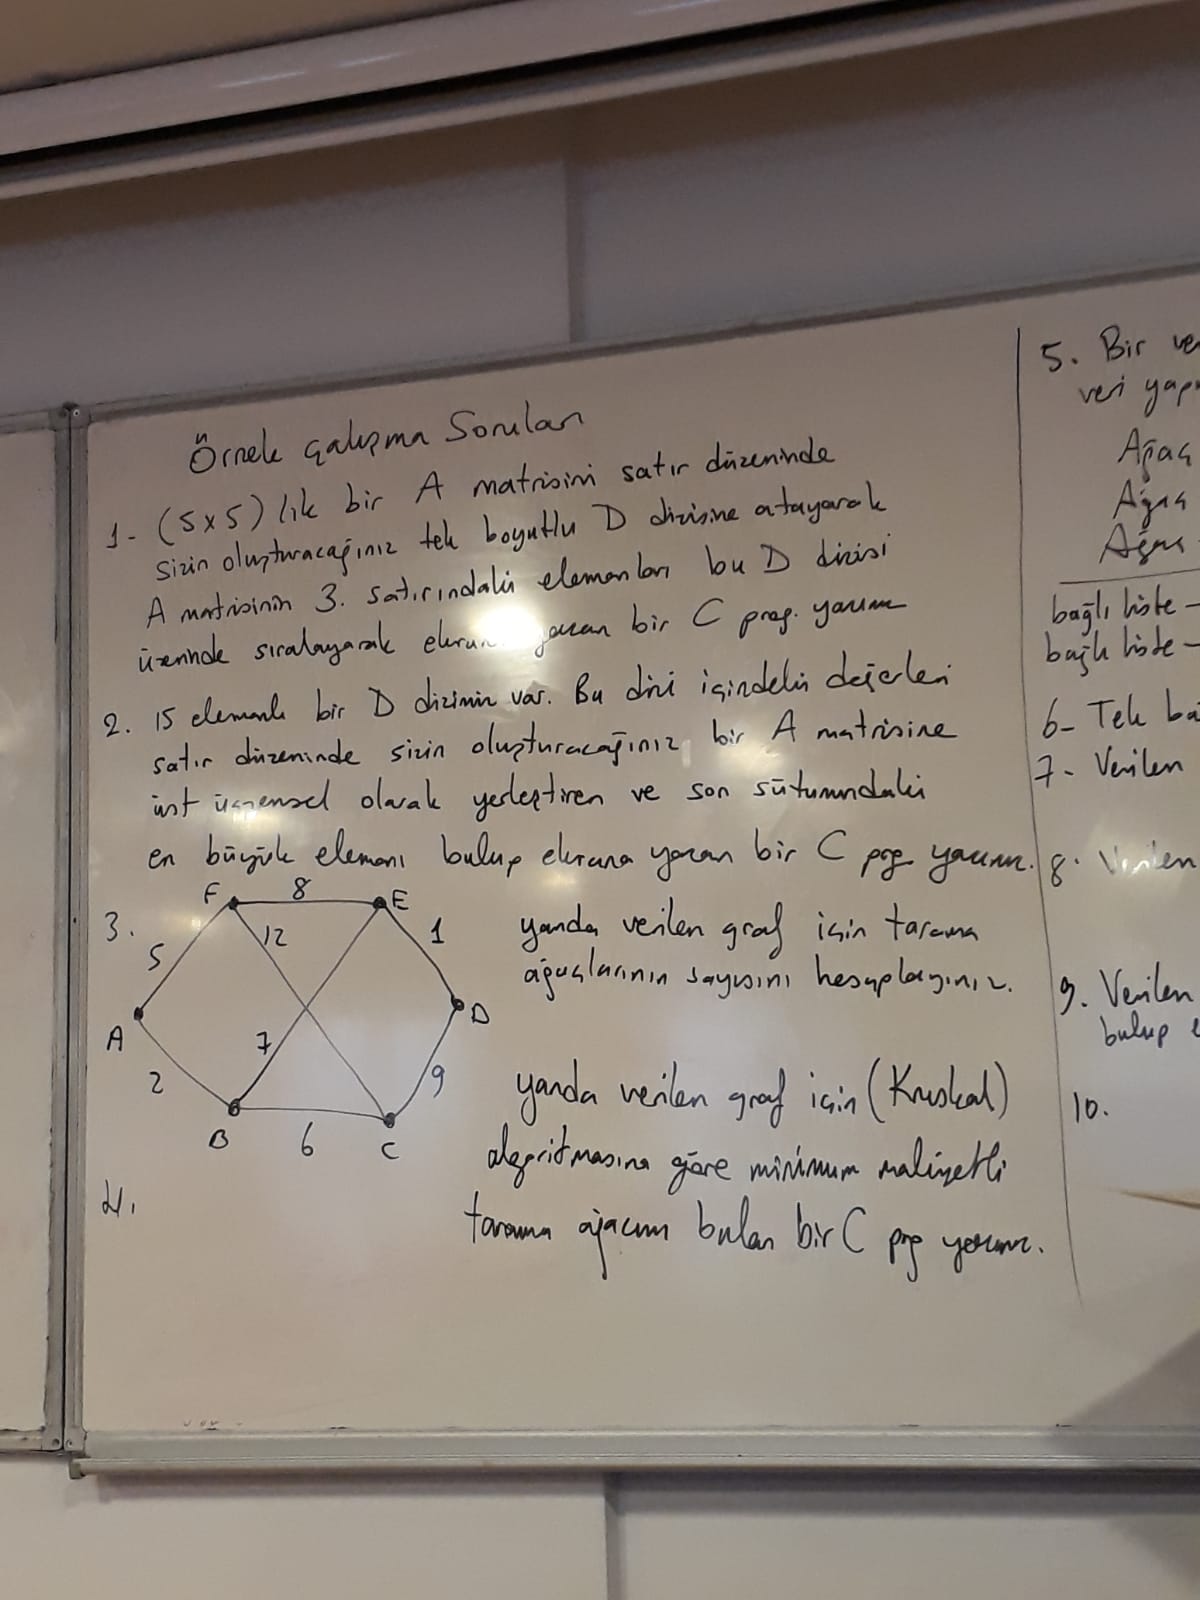 Örnek çalışma Soruları
1- (5x5) lik bir A matrisini satır düzeninde
sizin oluşturacağınız tek boyutlu D dizisine atayarak
A matrisinin 3. satırındaki elemanları bu D dizisi
üzerinde sıralayarak ekrana yazan bir C prog. yazınız
2. 15 elemanlı bir D dizimiz var. Bu dizi içindeki değerleri
satır düzeninde sizin oluşturacağınız bir A matrisine
üst üçgensel olarak yerleştiren ve son sütunundaki
en büyük elemanı bulup ekrana yazan bir C prog yazınız.
3.
F 8 E
5 12 1
A D
7
2 9
B 6 C
yanda verilen graf için tarama
ağaçlarının sayısını hesaplayınız.
4.
yanda verilen graf için (Kruskal)
algoritmasına göre minimum maliyetli
tarama ağacını bulan bir C prog yazınız.
5. Bir
veri
Ağaç
Ağaç
Ağaç
bağlı liste -
bağlı liste -
6- Tek
7- Verilen
8. Verilen
9. Verilen
bulup
10.